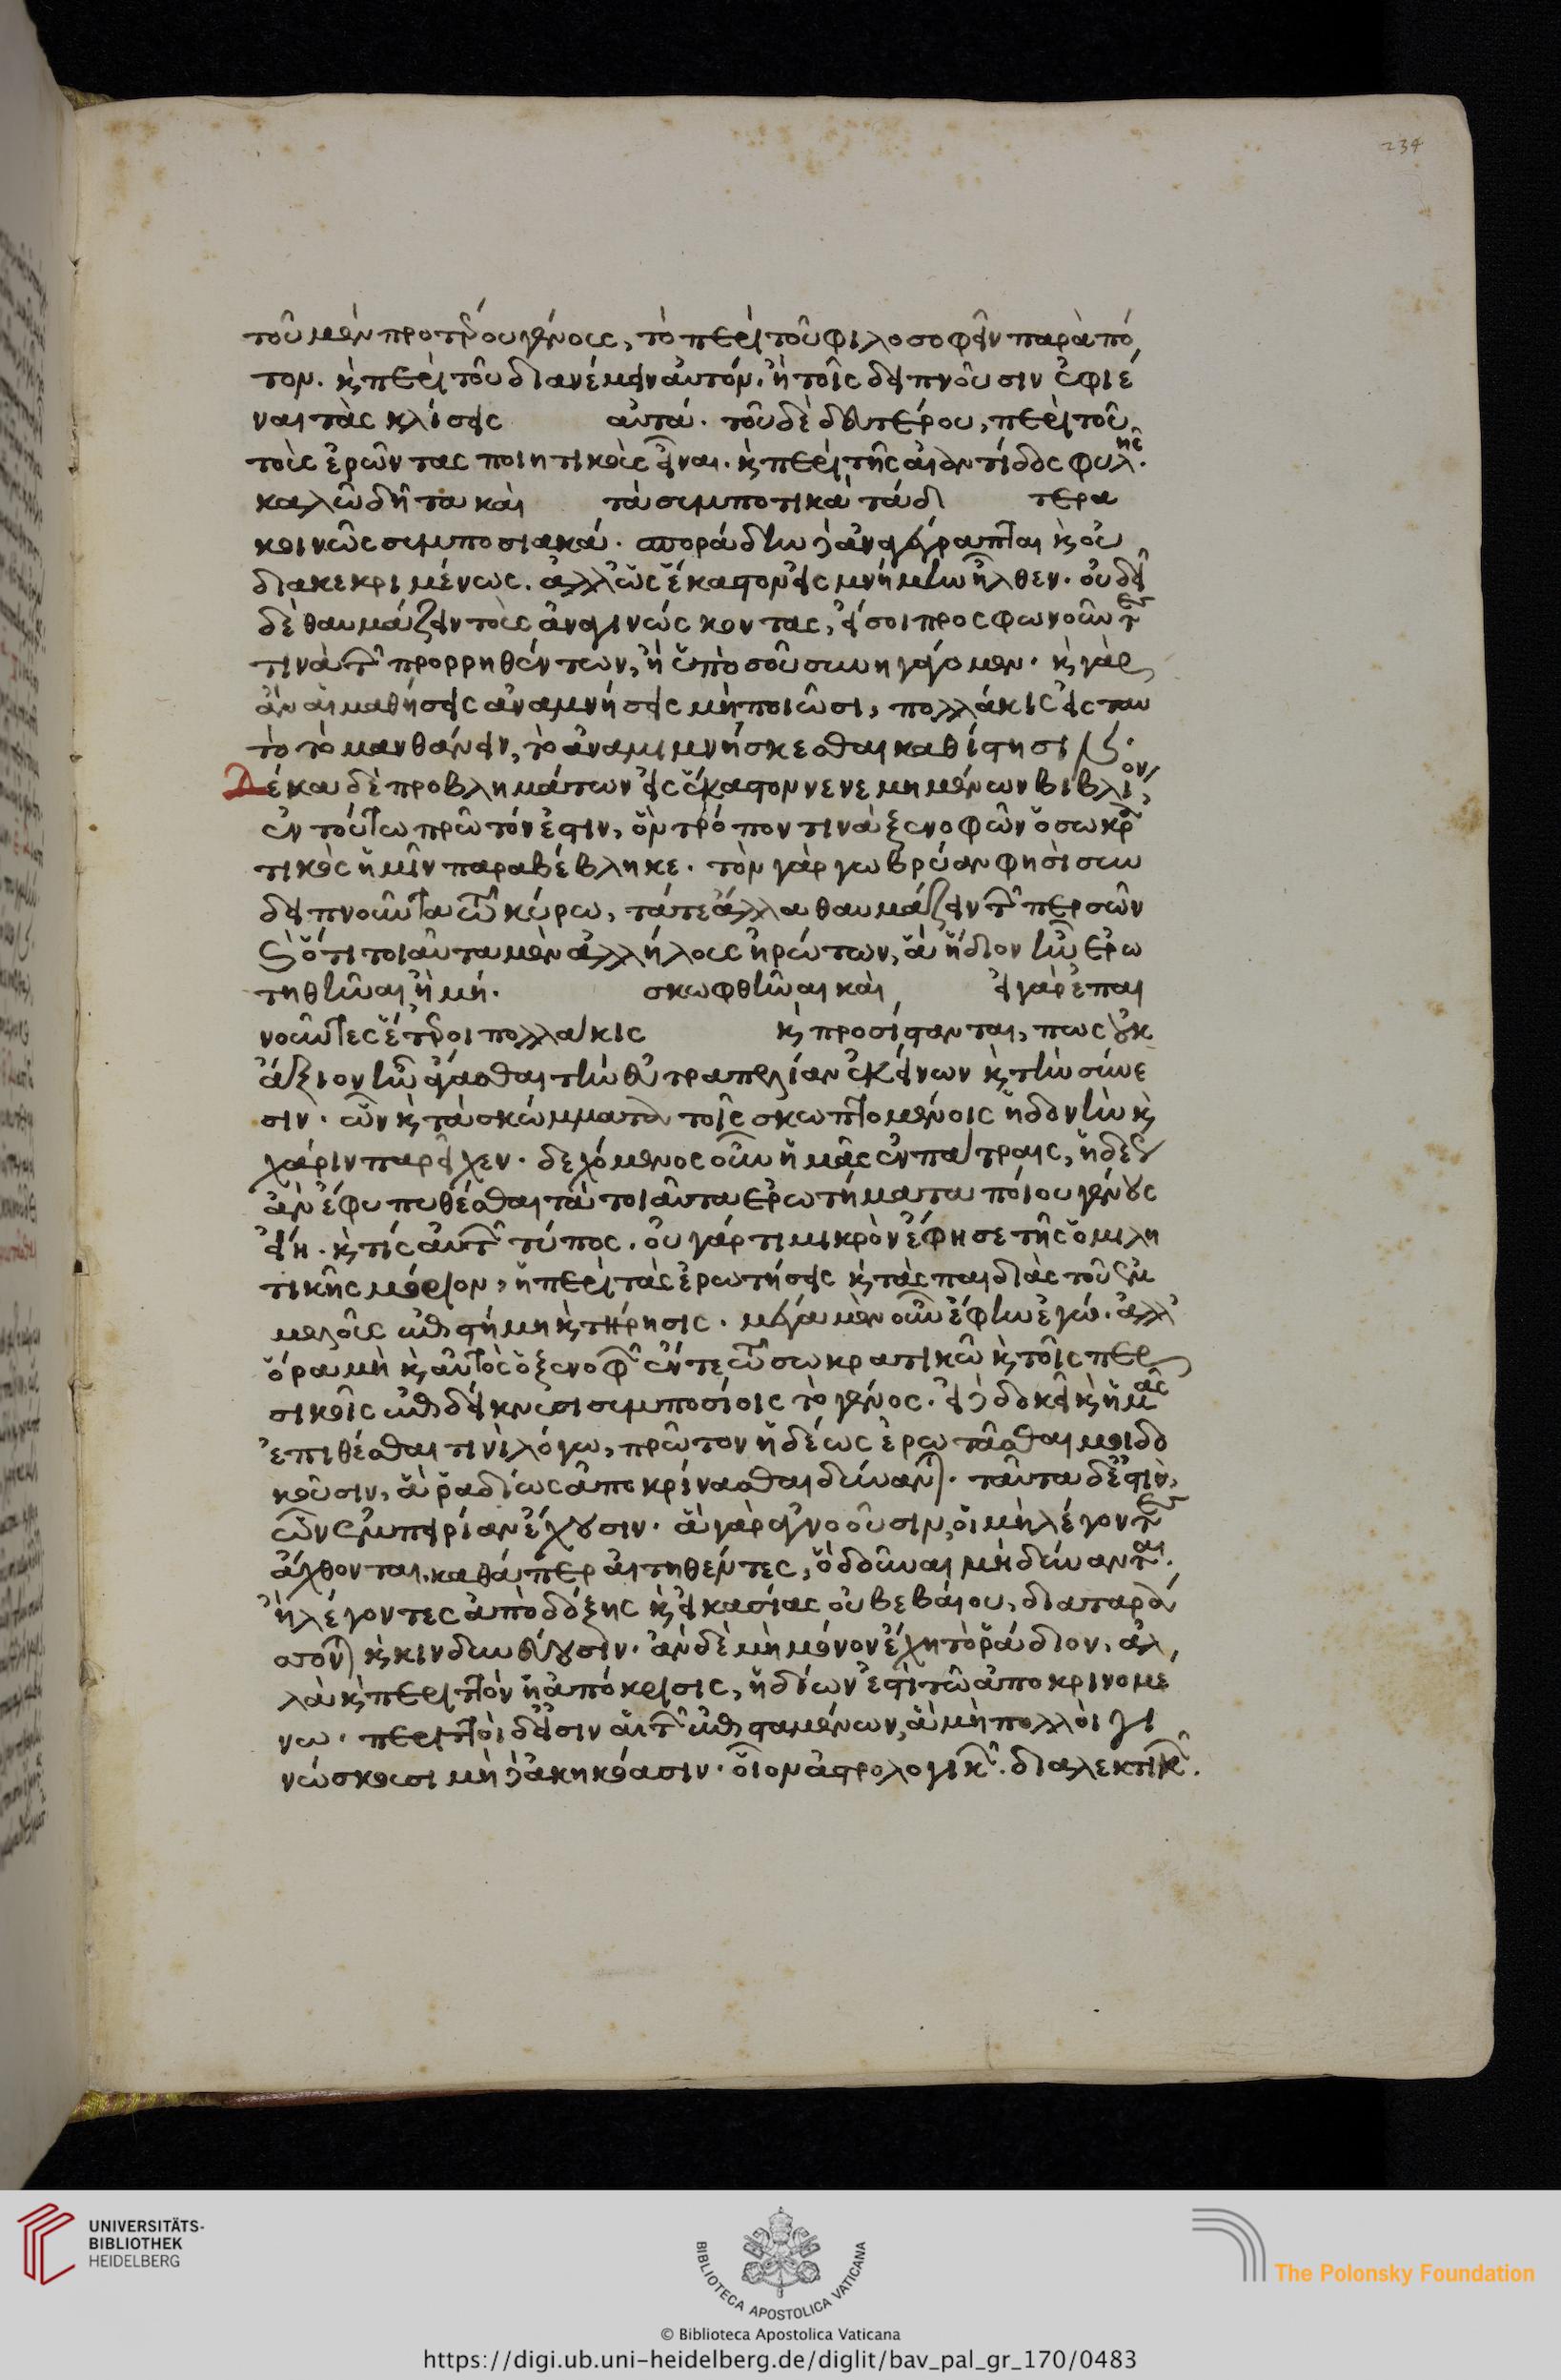 234
τοῦ μὲν προτέρου γένους, τὸ περὶ τοῦ φιλοσοφεῖν παρὰ πό
τον. καὶ περὶ τοῦ διανέμειν αὐτόν. ἢ τοῖς δειπνοῦσιν ἐφιέ
ναι τὰς κλίσεις αὐτά. τοῦ δὲ δευτέρου, περὶ τοῦ
τοὺς ἐρῶντας ποιητικοὺς εἶναι. καὶ περὶ τῆς αἰαντίδος φυλῆς.
καλῶ δῆτα καὶ τὰ συμποτικὰ τὰ δ τερα
κοινῶς συμποσιακά. σποράδην δ' ἀναγέγραπται καὶ οὐ
διακεκριμένως. ἀλλ' ὡς ἕκαστον εἰς μνήμην ἦλθεν. οὐ δεῖ
δὲ θαυμάζειν τοὺς ἀναγινώσκοντας, εἰ σοὶ προσφωνοῦντες
τινὰ τῶν προρρηθέντων, ἢ ὑπὸ σοῦ συνηγάγομεν. καὶ γὰρ
ἂν αἱ μαθήσεις ἀναμνήσεις μὴ ποιῶσι, πολλάκις εἰς ταυ
τὸ τὸ μανθάνειν, τὸ ἀναμιμνήσκεσθαι καθίστησι
Δέκα δὲ προβλημάτων εἰς ἕκαστον νενεμημένων βιβλίον,
ἐν τούτω πρῶτόν ἐστιν, ὃν τρόπον τινὰ ξενοφῶν ὁ σωκρα
τικὸς ἡμῖν παραβέβληκε. τὸν γὰρ γωβρύαν φησὶ συν
δειπνοῦντα τῶ κύρω, τά τε ἄλλα θαυμάζειν τῶν περσῶν
καὶ ὅτι τοιαῦτα μὲν ἀλλήλους ἠρώτων, ἃ ἥδιον ἦν ἐρω
τηθῆναι ἢ μή. σκωφθῆναι καὶ εἰ γὰρ ἐπαι
νοῦντες ἕτεροι πολλάκις καὶ προσίστανται, πως οὐκ
ἄξιον ἦν ἄγασθαι τὴν εὐτραπελίαν ἐκείνων καὶ τὴν σύνε
σιν. ὧν καὶ τὰ σκώμματα τοῖς σκωπτομένοις ἡδονὴν καὶ
χάριν παρεῖχεν. δεχόμενος οὖν ἡμᾶς ἐν πάτραις, ἡδέως
ἂν ἔφη πυθέσθαι τὰ τοιαῦτα ἐρωτήματα ποίου γένους
εἴη. καὶ τίς αὐτῶν τύπος. οὐ γάρ τι μικρὸν ἔφησε τῆς ὁμιλη
τικῆς μόριον, ἡ περὶ τὰς ἐρωτήσεις καὶ τὰς παιδιὰς τοῦ ἐμ
μελοῦς ἐπιστήμη καὶ τήρησις. μέγα μὲν οὖν ἔφην ἐγώ. ἀλλ'
ὅρα μὴ καὶ αὐτὸς ὁ ξενοφῶν ἔν τε τῶ σωκρατικῶ καὶ τοῖς περ
σικοῖς ἐπιδείκνυσι συμποσίοις τὸ γένος. εἰ δὲ δοκεῖ καὶ ἡμᾶς
ἐπιθέσθαι τινὶ λόγω, πρῶτον ἡδέως ἐρωτᾶσθαι μοι δο
κοῦσιν, ἃ ῥαδίως ἀποκρίνασθαι δύνανται. ταῦτα δ' ἐστὶν,
ὧν ἐμπειρίαν ἔχουσιν. ἃ γὰρ ἀγνοοῦσιν, οἳ μὴ λέγοντες
ἄχθονται, καθάπερ αἰτηθέντες, ὃ δοῦναι μὴ δύνανται.
ἢ λέγοντες ἀπὸ δόξης καὶ εἰκασίας οὐ βεβαίου, διαταράσ
σονται καὶ κινδυνεύουσιν. ἂν δὲ μὴ μόνον ἔχη τὸ ῥάδιον, ἀλ
λὰ καὶ περιττὸν ἡ ἀπόκρισις, ἡδίων ἐστὶ τῶ ἀποκρινομέ
νω. περιτταὶ δ' εἰσὶν αἱ τῶν ἐπισταμένων, ἃ μὴ πολλοὶ γι
νώσκουσι μὴ δ' ἀκηκόασιν. οἷον ἀστρολογικῶν. διαλεκτικῶν.
UNIVERSITÄTS-
BIBLIOTHEK
HEIDELBERG
BIBLIOTECA APOSTOLICA VATICANA
The Polonsky Foundation
© Biblioteca Apostolica Vaticana
https://digi.ub.uni-heidelberg.de/diglit/bav_pal_gr_170/0483